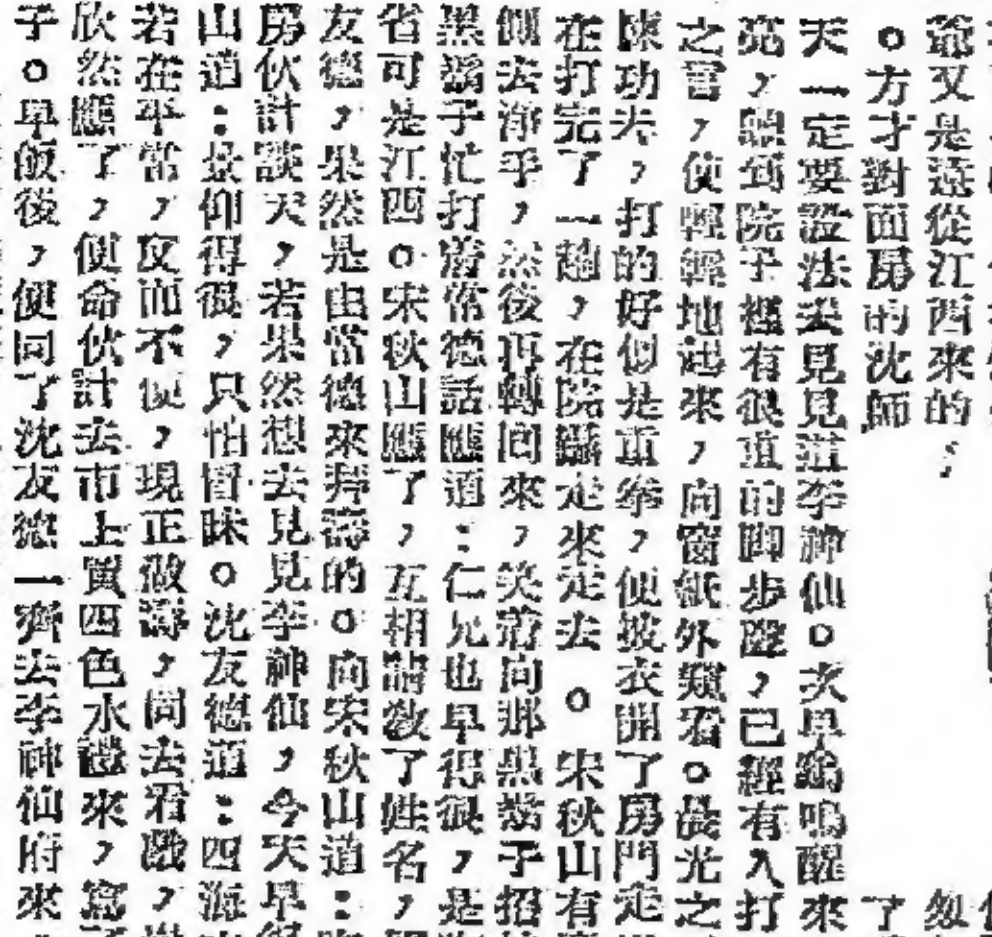 爺又是遠從江西來的
。方才對面房的沈師
天一定要設法去見見這李神仙。次早鷄鳴醒來
亮,聽到院子裡有很重的脚步聲,已經有人打
之書,便輕輕地起來,向窗紙外窺看。晨光之
陳功夫,打的好似是重拳,便披衣開了房門走
在打完了一趟,在院走來走去。宋秋山有
側去淨手,然後再轉回來,笑着向那黑鬍子招
黑鬍子忙打着常德話應道:仁兄也早得很,是
省可是江西。宋秋山應了,互相請教了姓名,
友德,果然是由常德來拜壽的。向宋秋山道:
房伙計談天,若果然想去見見李神仙,今天早
山道:景仰得很,只怕冒昧。沈友德道:四海
若在平常,反而不便,現正做壽,同去看戲,
欣然應了,便命伙計去市上買四色水禮來,寫
子。早飯後,便同了沈友德一齊去李神仙府來